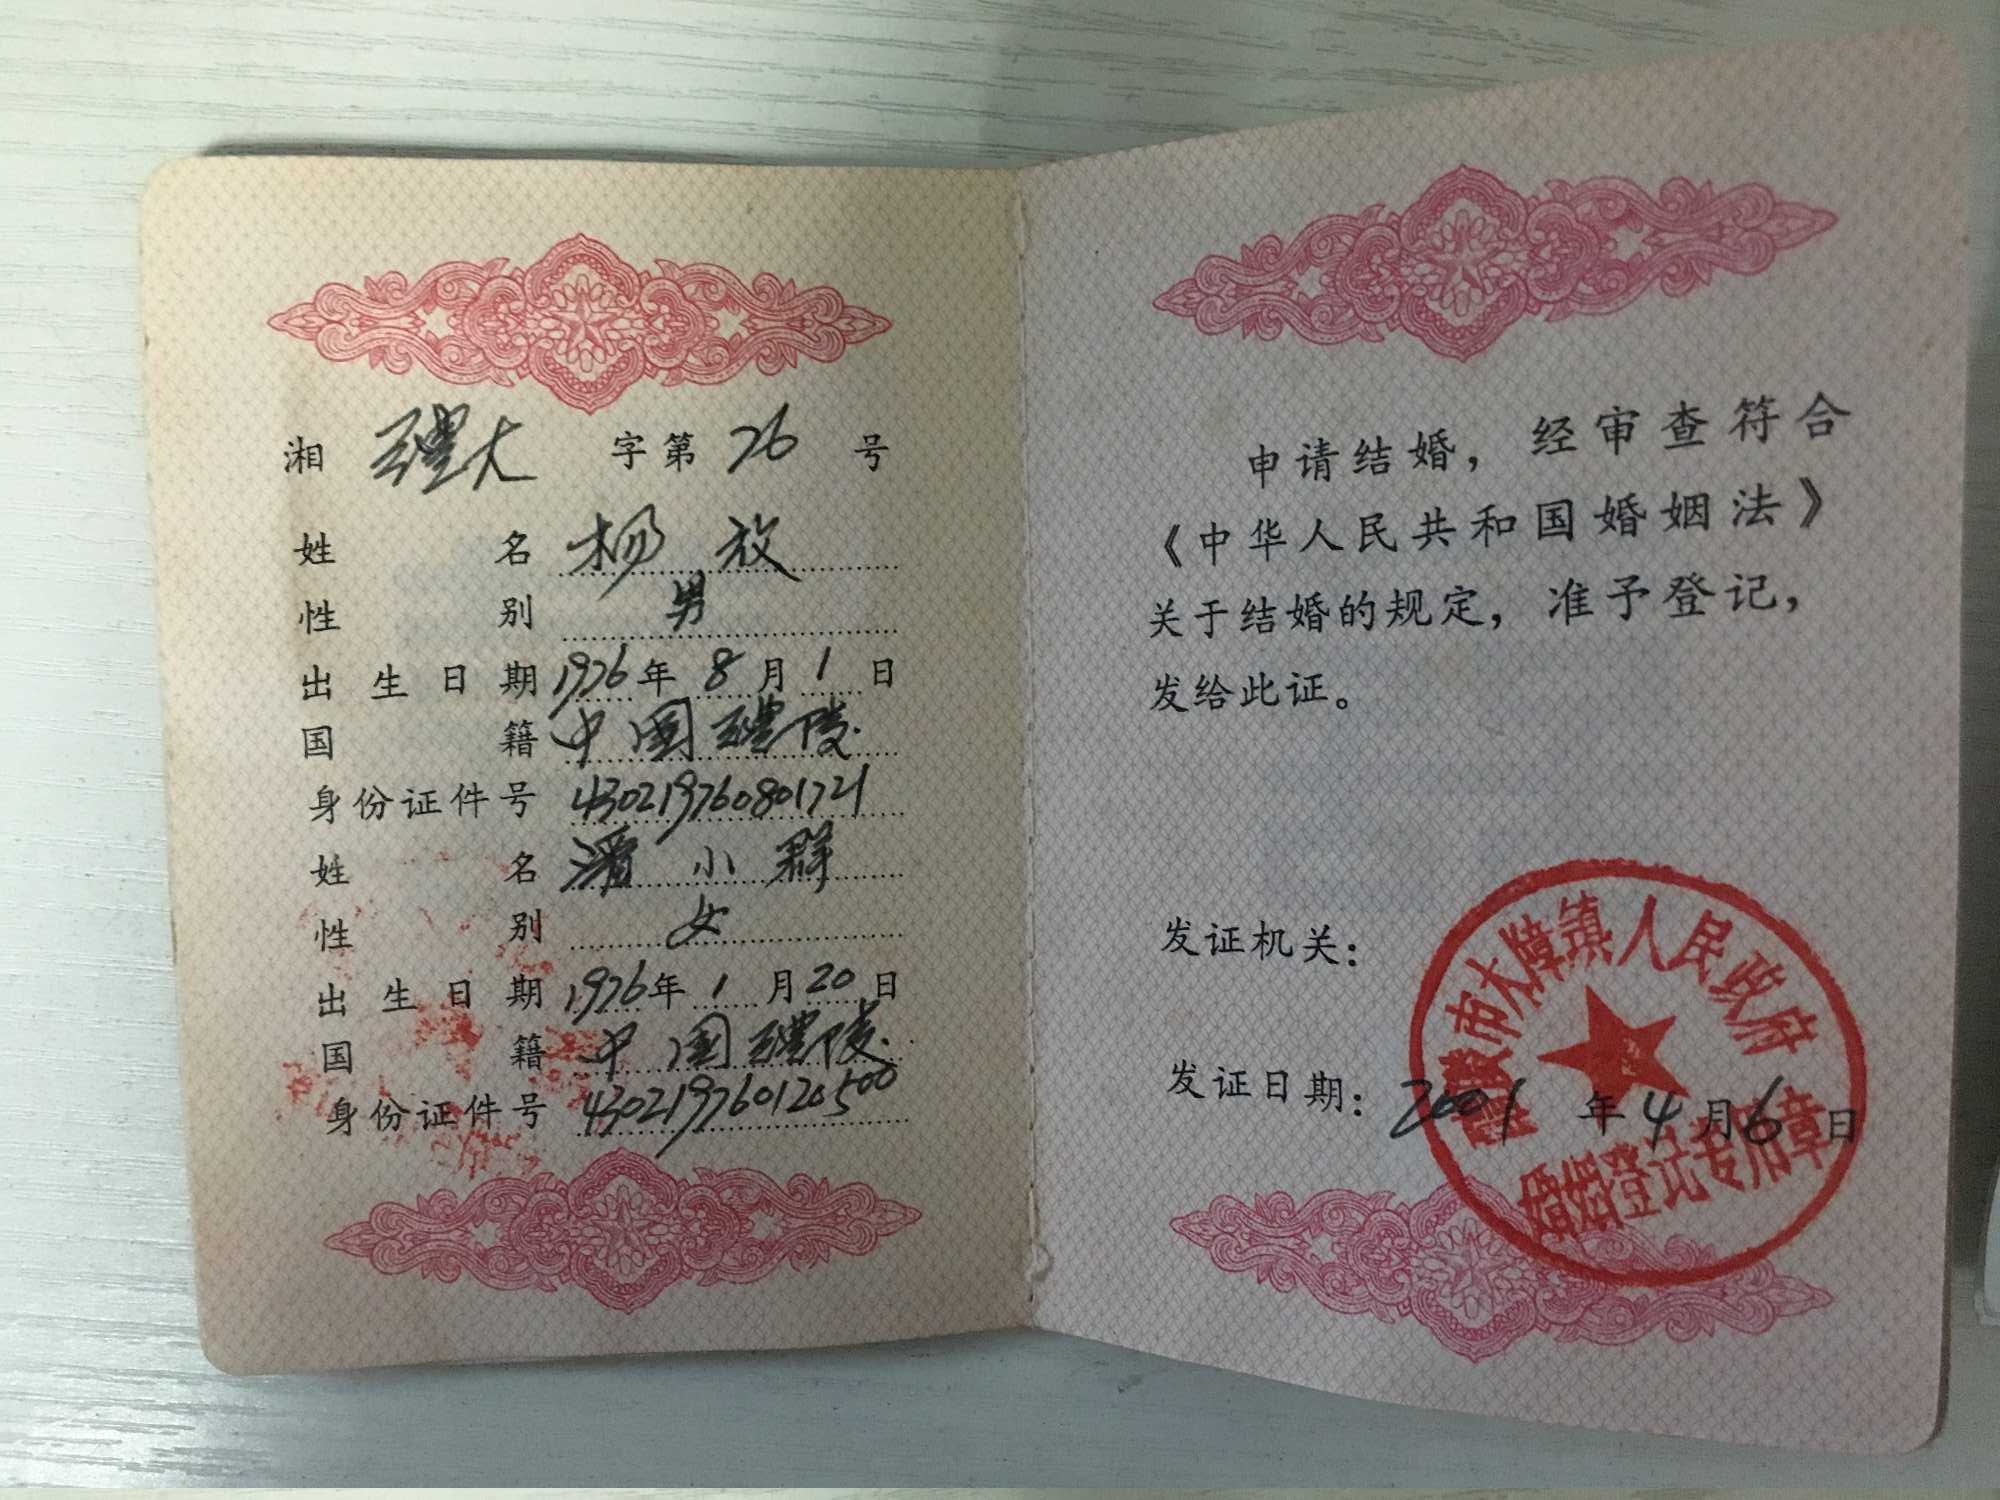 湘 醴大 字第 26 号
姓名 杨放
性别 男
出生日期 1976年8月1日
国籍 中国醴陵
身份证件号 430219760801721
姓名 潘小群
性别 女
出生日期 1976年1月20日
国籍 中国醴陵
身份证件号 430219760120500
申请结婚，经审查符合
《中华人民共和国婚姻法》
关于结婚的规定，准予登记，
发给此证。
发证机关：
醴陵市大障镇人民政府
发证日期：2001年4月6日
婚姻登记专用章